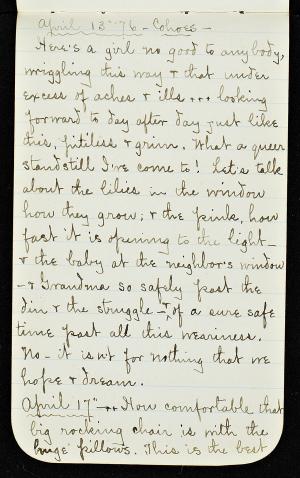 April 13" 76 - Cohoes -
Here's a girl no good to anybody,
wriggling this way & that under
excess of aches & ills ... looking
forward to day after day just like
this, pitiless & grim. What a queer
standstill I've come to! Let's talk
about the lilies in the window
how they grow; & the pink, how
fast it is opening to the light -
& the baby at the neighbor's window
- & Grandma so safely past the
din & the struggle - & of a sure safe
time past all this weariness.
No - it isn't for nothing that we
hope & dream.
April 17" ... How comfortable that
big rocking chair is with the
huge pillows. This is the best